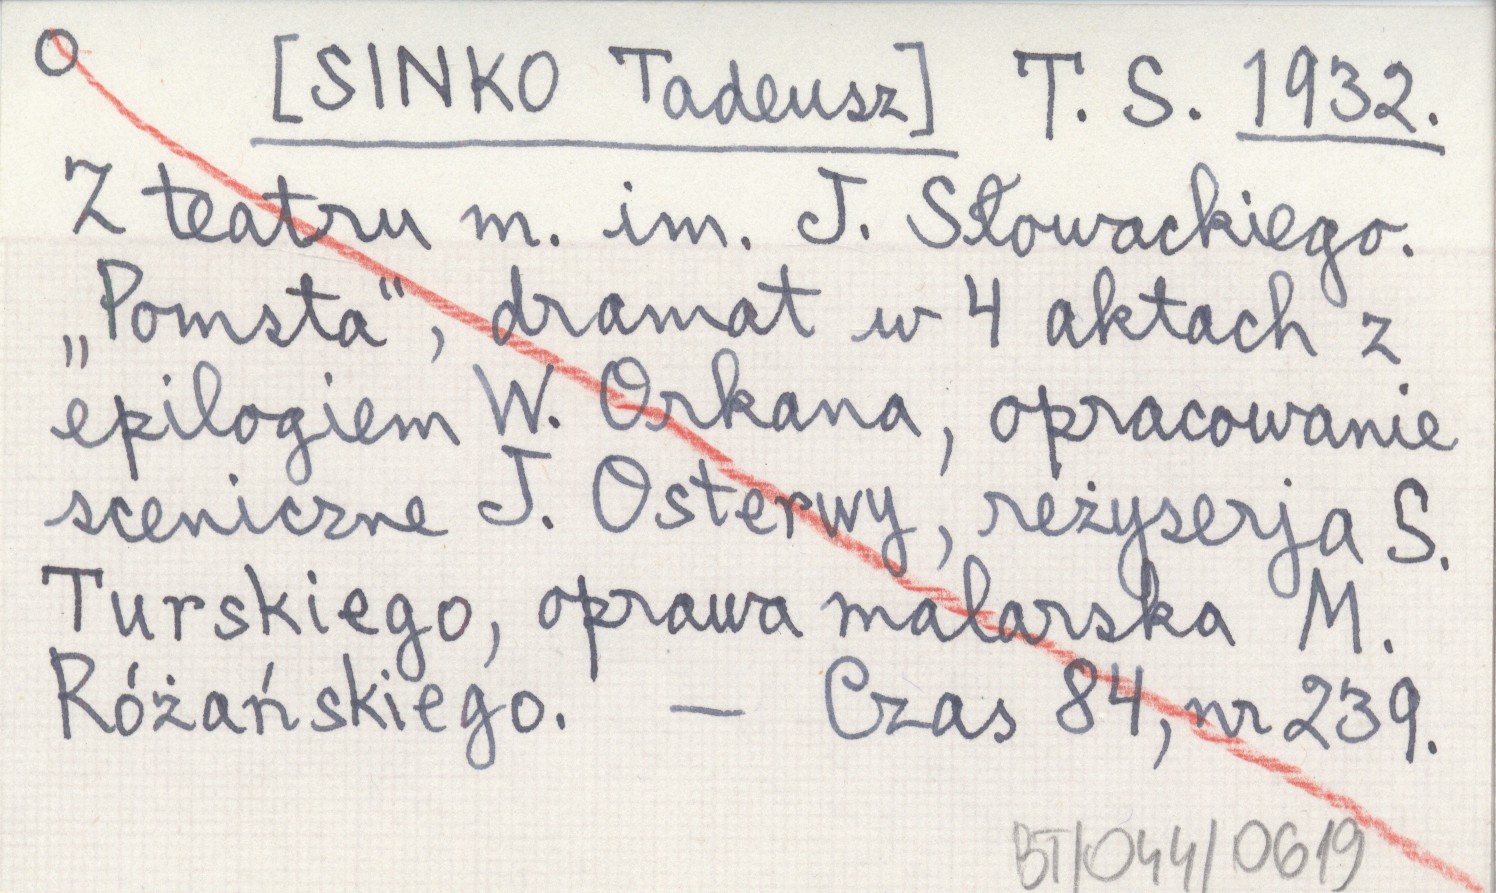 O [SINKO Tadeusz] T. S. 1932.
Z teatru m. im. J. Słowackiego.
„Pomsta“, dramat w 4 aktach z
epilogiem W. Orkana, opracowanie
sceniczne J. Osterwy, reżyserja S.
Turskiego, oprawa malarska M.
Różańskiego. — Czas 84, nr 239.
BT/044/0619